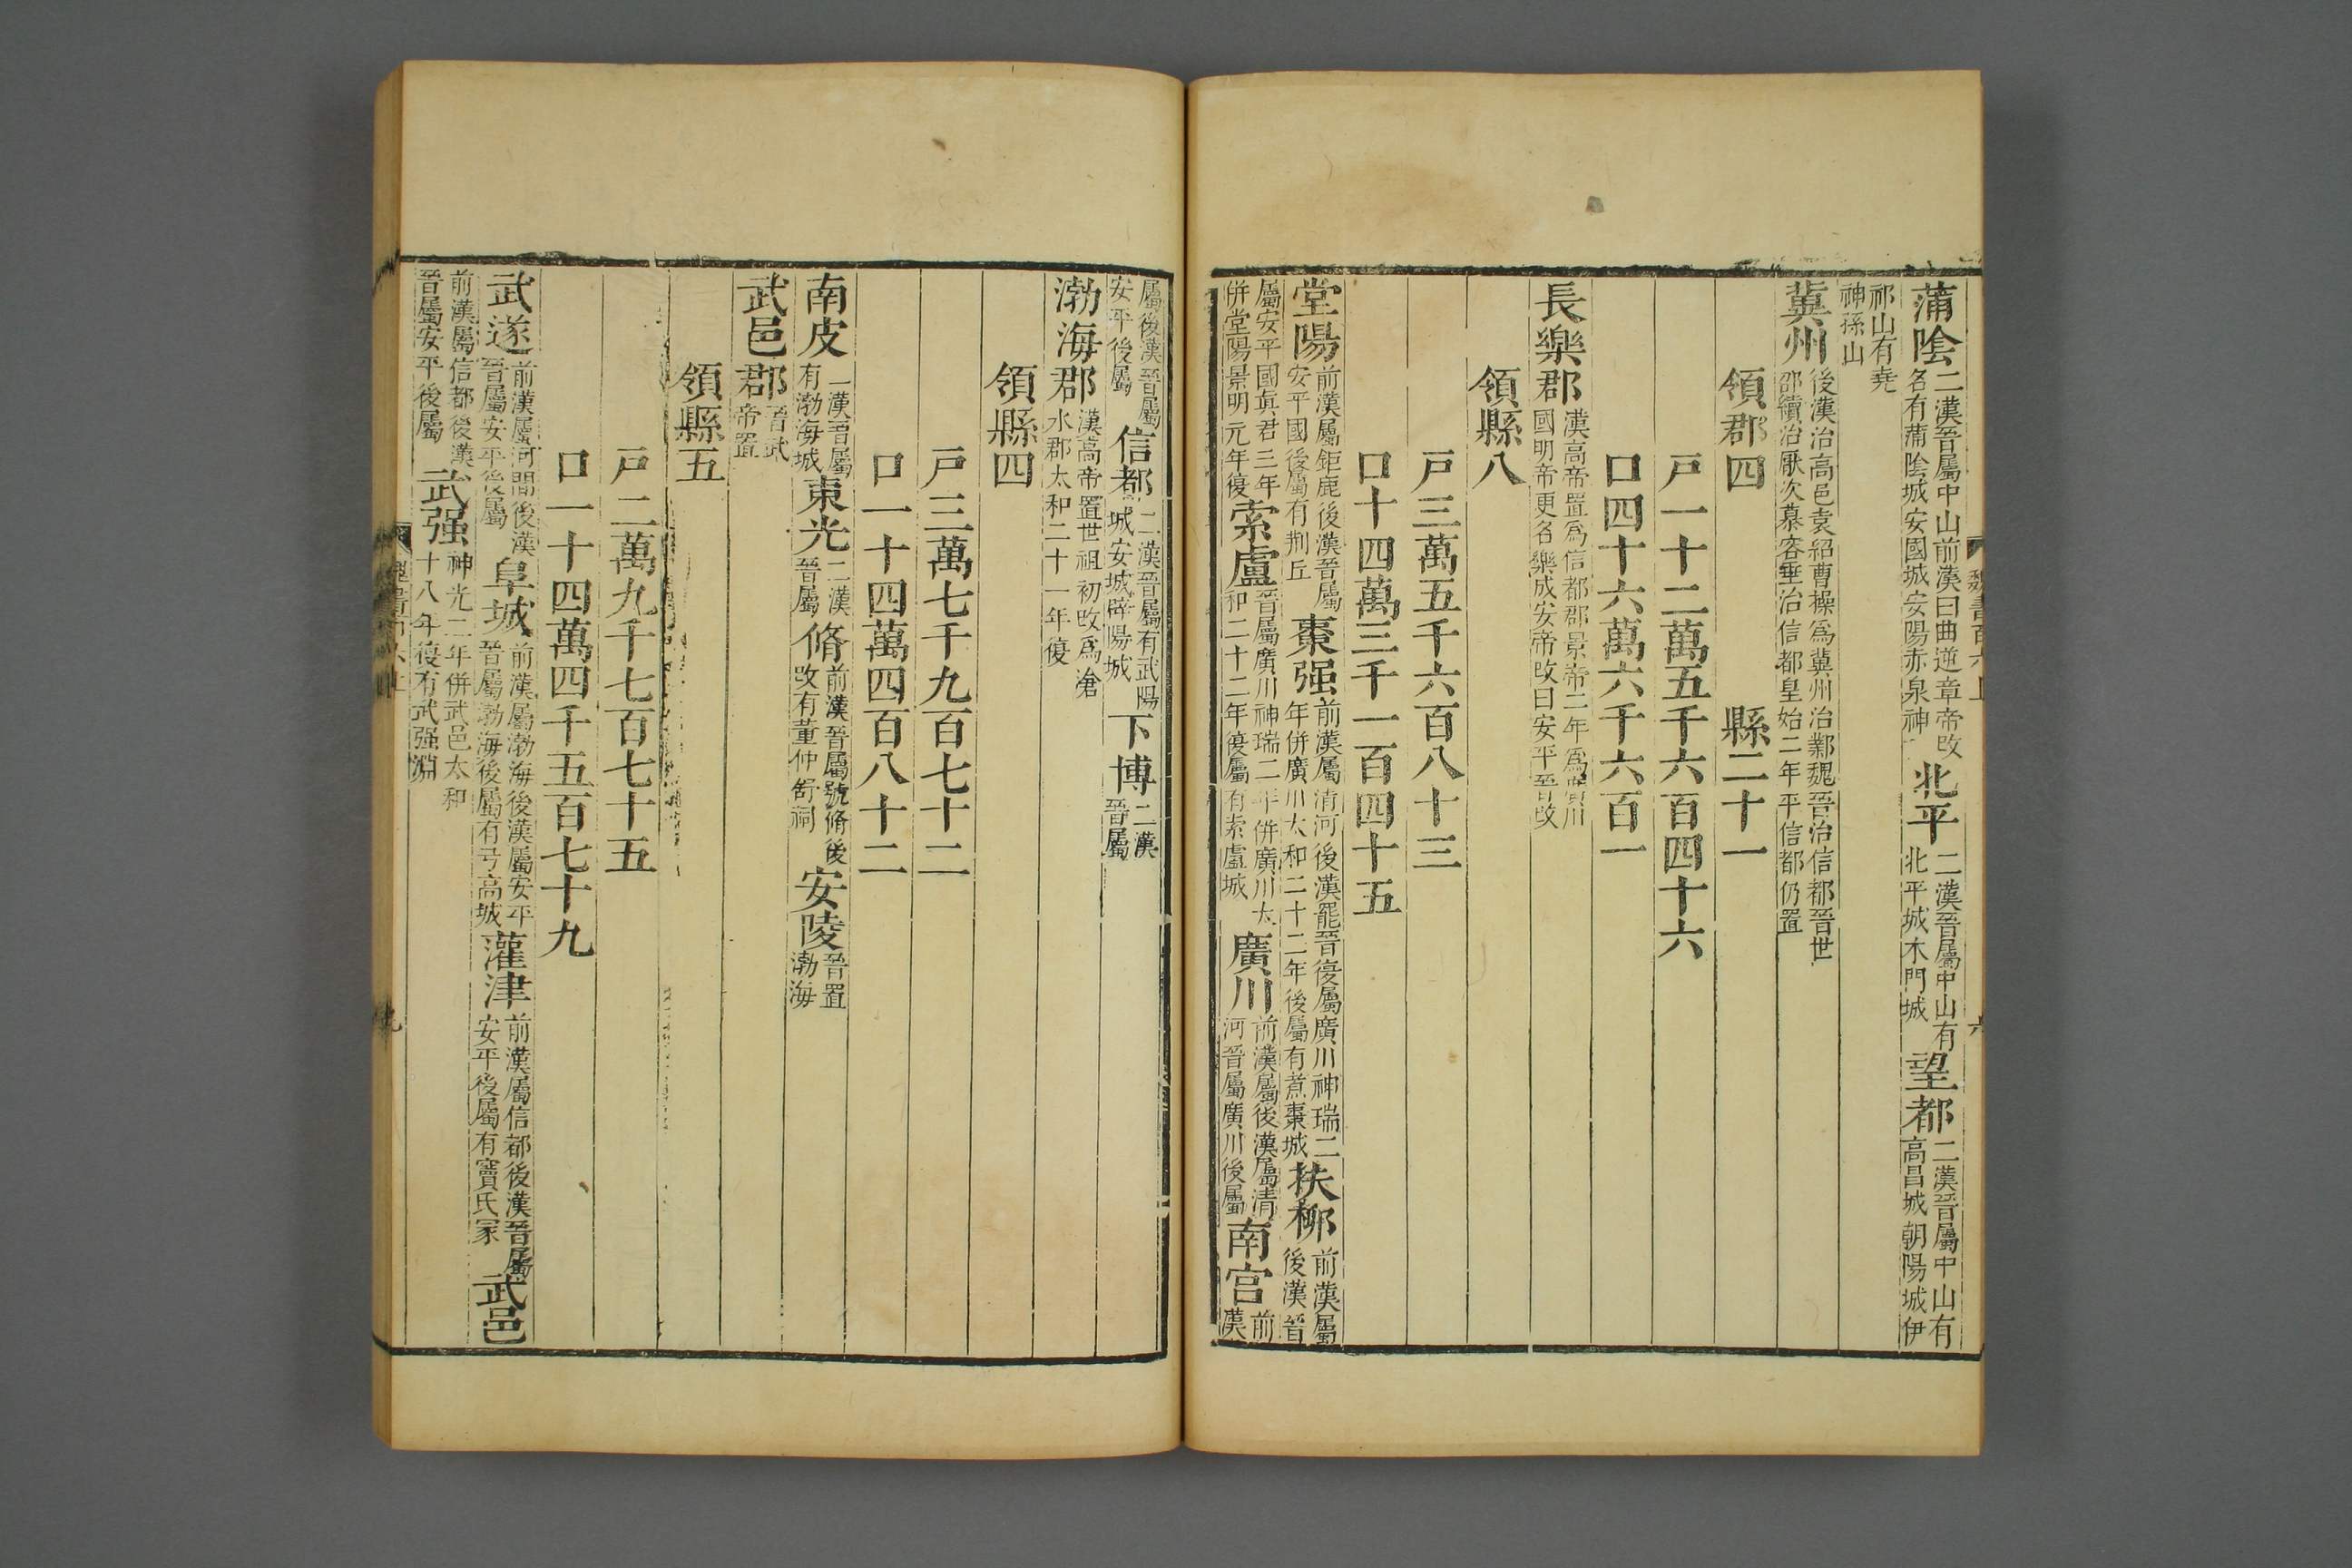 蒲陰二漢晉屬中山前漢曰曲逆章帝改名有蒲陰城安國城安陽赤泉神北平二漢晉屬中山有北平城木門城望都二漢晉屬中山有高昌城朝陽城伊
祁山有堯神孫山
冀州後漢治高邑袁紹曹操為冀州治鄴魏晉治信都晉世邵續治厭次慕容垂治信都皇始二年平信都仍置
領郡四 縣二十一
戸一十二萬五千六百四十六
口四十六萬六千六百一
長樂郡漢高帝置為信都郡景帝二年為廣川國明帝更名樂成安帝改曰安平晉改
領縣八
戸三萬五千六百八十三
口十四萬三千一百四十五
堂陽前漢屬鉅鹿後漢晉屬安平國後屬有荆丘棗强前漢屬清河後漢罷晉復屬廣川神瑞二年併廣川太和二十二年後屬有煮棗城扶柳前漢屬後漢晉
屬安平國真君三年併堂陽景明元年復索盧晉屬廣川神瑞二年併廣川太和二十二年復屬有索盧城廣川前漢屬後漢屬清河晉屬廣川後屬南宮前漢
屬後漢晉屬安平後屬信都二漢晉屬有武陽城安城辟陽城下博二漢晉屬
渤海郡漢高帝置世祖初改為滄水郡太和二十一年復
領縣四
戸三萬七千九百七十二
口一十四萬四百八十二
南皮二漢晉屬有渤海城東光二漢晉屬脩前漢晉屬號脩後改有董仲舒祠安陵晉置渤海
武邑郡晉武帝置
領縣五
戸二萬九千七百七十五
口一十四萬四千五百七十九
武遂前漢屬河間後漢晉屬安平後屬阜城前漢屬渤海後漢屬安平晉屬勃海後屬有弓高城灌津前漢屬信都後漢晉屬安平後屬有竇氏冢武邑
前漢屬信都後漢晉屬安平後屬武强神光二年併武邑太和十八年復有武强淵